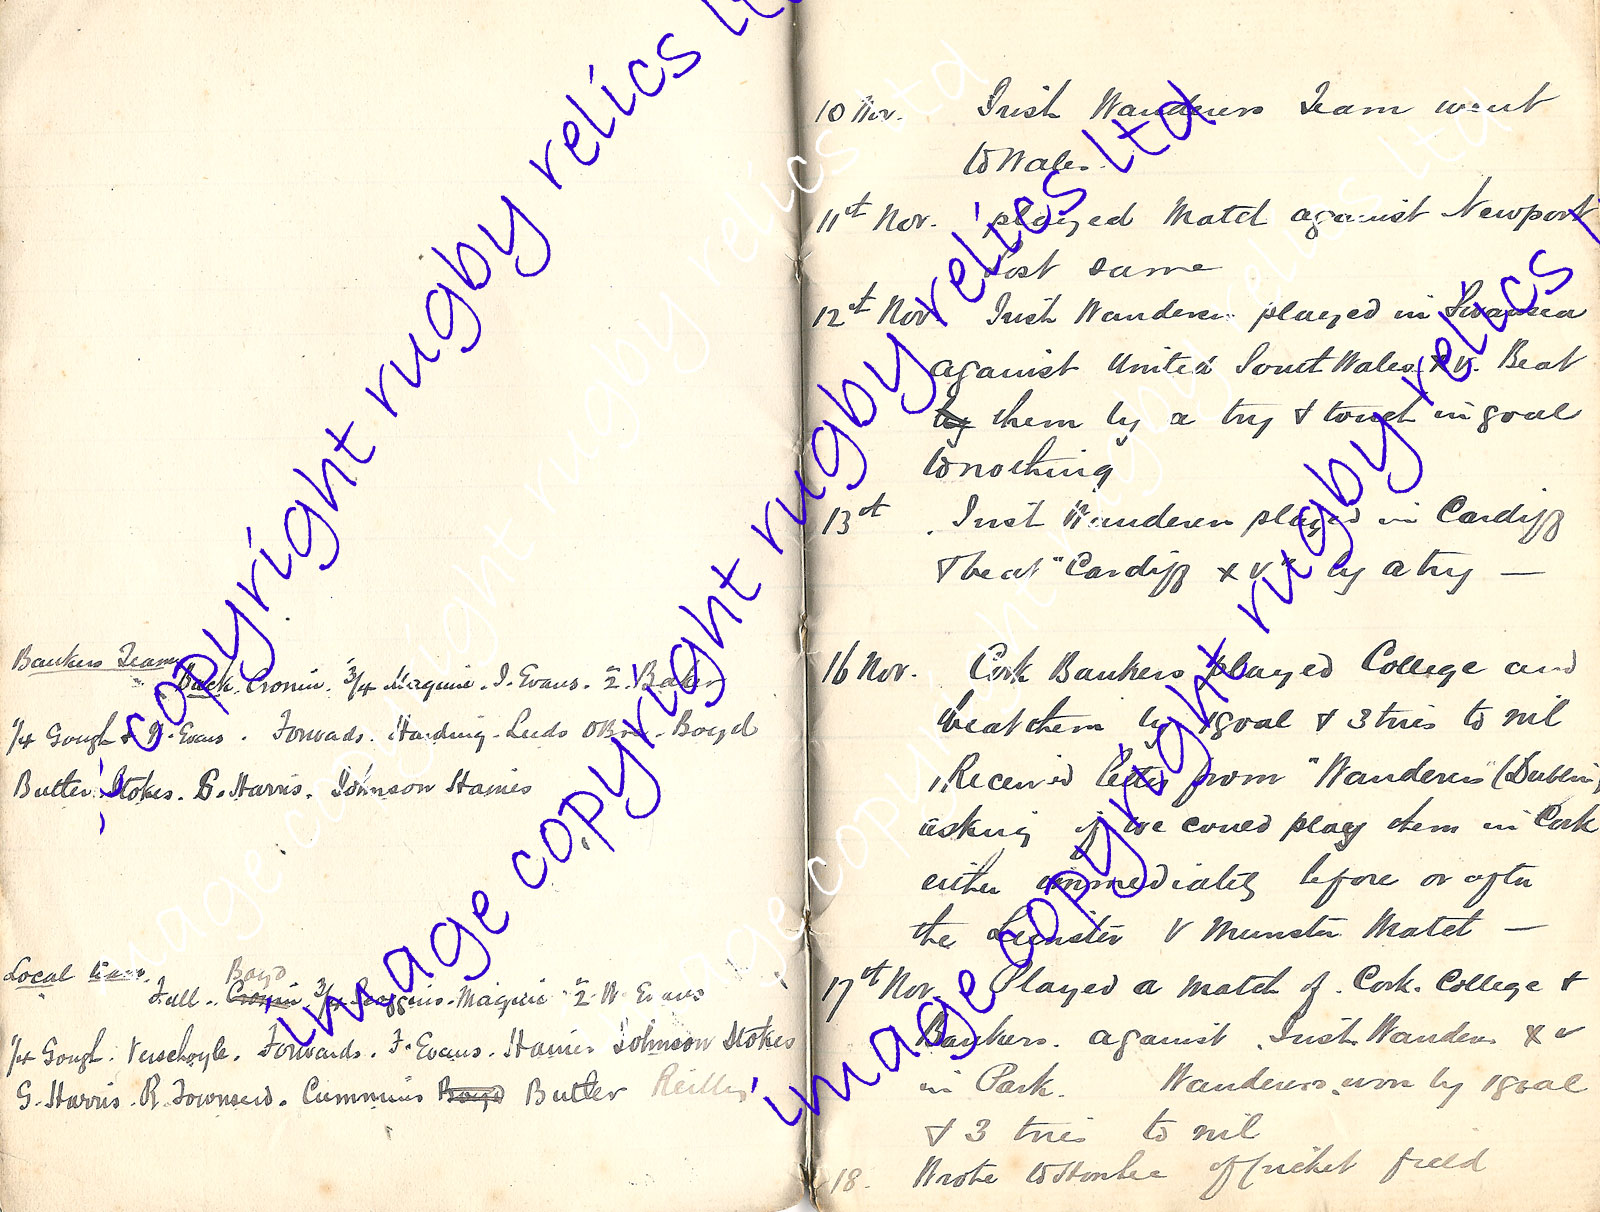 Bankers Team
Back. Cronin. 3/4 Maguire. J. Evans. 2. Baker
1/4 Gough & W. Evans. Forwards. Harding. Leeds OBre. Boyd
Butler. Stokes. G. Harris. Johnson Haines
Local team.
Boyd
Full. Cronin 3/4 Scoggins. Maguire 2 W. Evans
1/4 Gough. Verschoyle. Forwards. F. Evans. Haines Johnson Stokes
G. Harris. R. Townsend. Cummins Boyd Butler Reilly
10 Nov. Irish Wanderers Team went
to Wales.
11th Nov. played Match against Newport
Lost same
12th Nov. Irish Wanderers played in Swansea
against United South Wales XV. Beat
by them by a try & touch in goal
to nothing
13th. Irish Wanderers played in Cardiff
& beat "Cardiff XV" by a try —
16 Nov. Cork Bankers played College and
beat them by 1 goal & 3 tries to nil
Received letter from "Wanderers" (Dublin)
asking if we could play them in Cork
either immediately before or after
the Leinster V Munster Match —
17th Nov. Played a match of Cork College &
Bankers. against Irish Wanderers XV
in Park. Wanderers won by 1 goal
& 3 tries to nil
18. Wrote to of Cricket field
image copyright rugby relics ltd
image copyright rugby relics ltd
image copyright rugby relics ltd